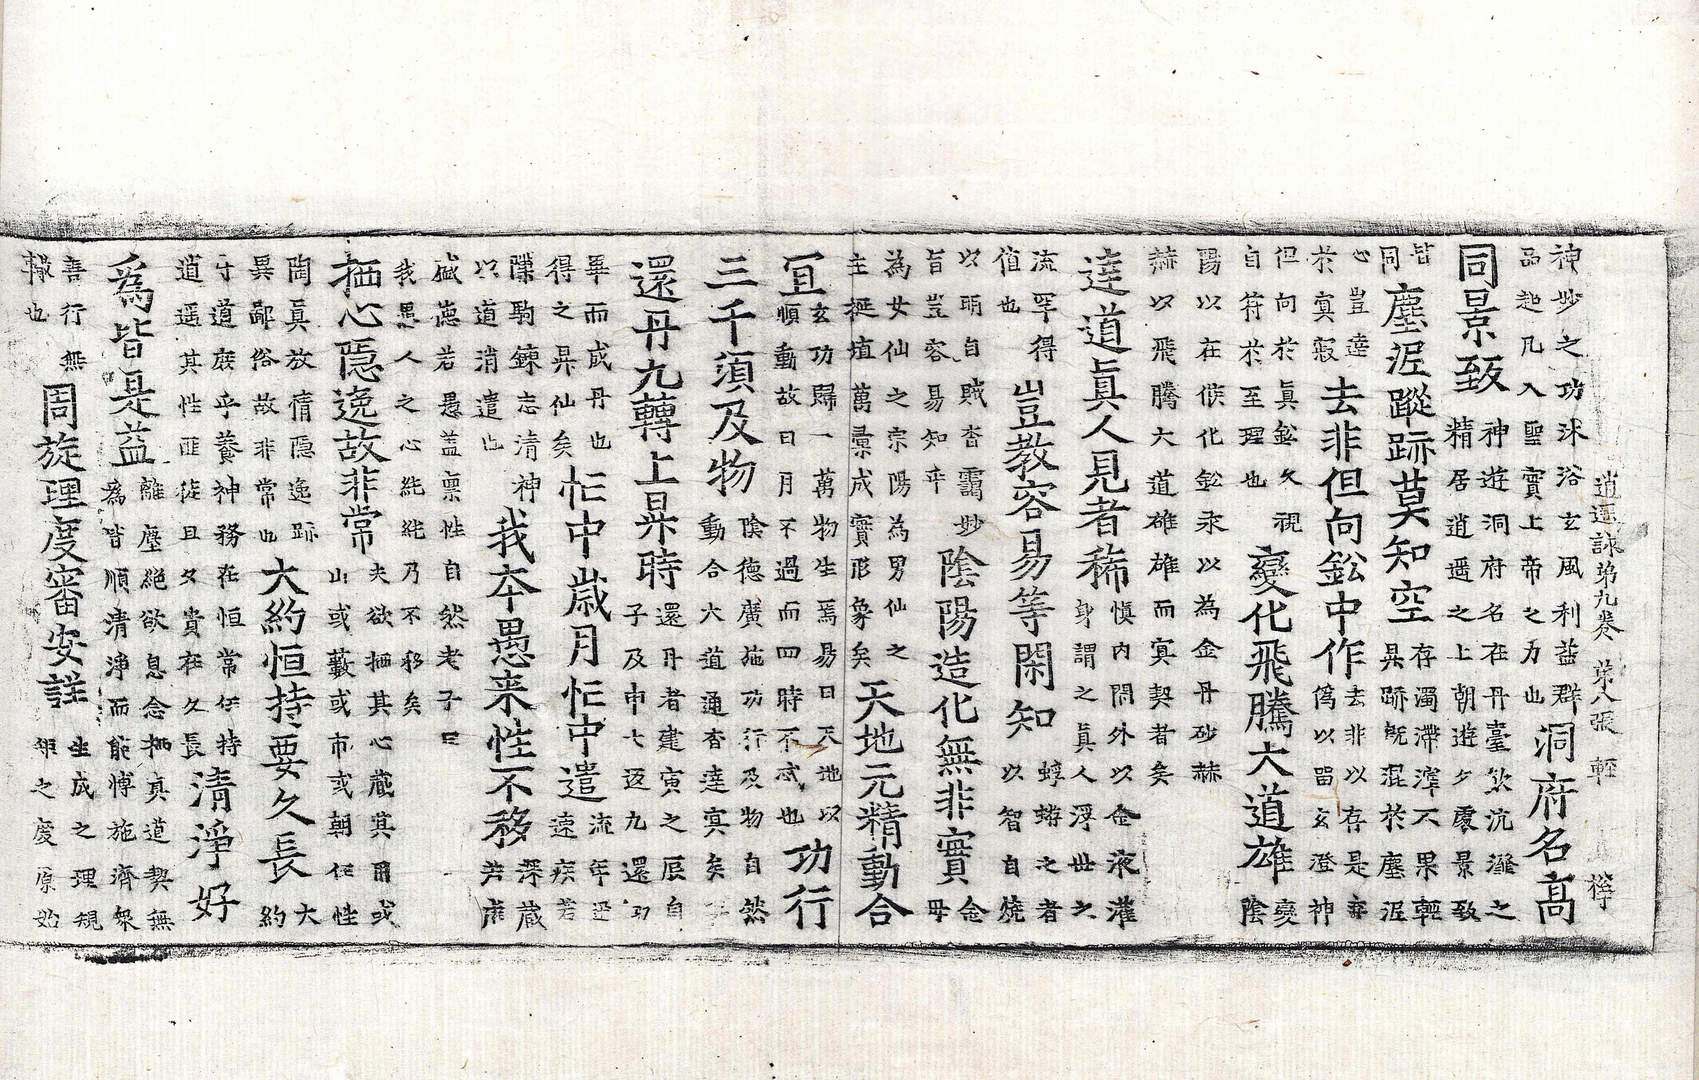 逍遥詠第九卷 第八張 輕
神妙之功沐浴玄風利益群
品起凡入聖實上帝之力也
洞府名高
同景致
神遊洞府名在丹臺飲沆瀣之
精居道遥之上朝遊夕處景致
皆
同
塵泥蹤跡莫知空
存濁滞滓不果輕
昇跡既混於塵泥
心豈達
於冥寂
去非但向鈆中作
去非以存是亦
偽以留玄澄神
但向於眞鈆久視
自符於至理也
變化飛騰大道雄
變
陰
陽以在候化鈆汞以為金丹砂赫
赫以飛騰大道雄雄而冥契者矣
達道眞人見者稀
慎內閑外以金液灌
身謂之眞人浮世之
流罕得
值也
豈教容易等閑知
蜉蝣之者
以智自燒
以明自賊杳靄妙
旨豈容易知乎
陰陽造化無非實
金
母
為女仙之宗陽為男仙之
主挻埴萬彙成實形象矣
天地元精動合
宜
玄功歸一萬物生焉易曰天地以
順動故日月不過而四時不忒也
功行
三千須及物
陰德廣施功行及物自然
動合大道通杳達寞矣
還丹九轉上昇時
還丹者建寅之辰自
子及申七返九還功
畢而成丹也
得之昇仙矣
忙中歲月忙中遣
流年迅
速疾若
隙駒鍊志清神
以道消遣也
我本愚来性不移
深藏
若虛
盛德若愚盖禀性自然老子曰
我愚人之心純純乃不移矣
栖心隱逸故非常
夫欲栖其心藏其用或
山或藪或市或朝任性
陶眞放情隱逸跡
異鄙俗故非常也
大約恒持要久長
大
約
守道庶乎養神務在恒常任持
逍遥其性匪徒且夕貴在久長
清淨好
為皆是益
離塵絶欲息念栖真道契無
為皆順清淨而能博施濟衆
善行無
轍也
周旋理度審安詳
生成之理規
矩之度原始